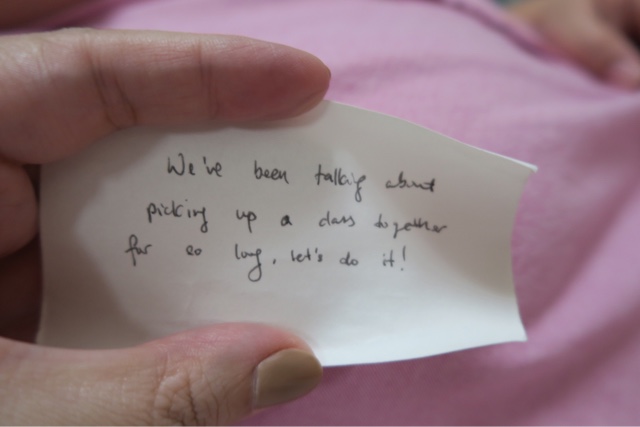 We've been talking about
picking up a class together
for so long, let's do it!